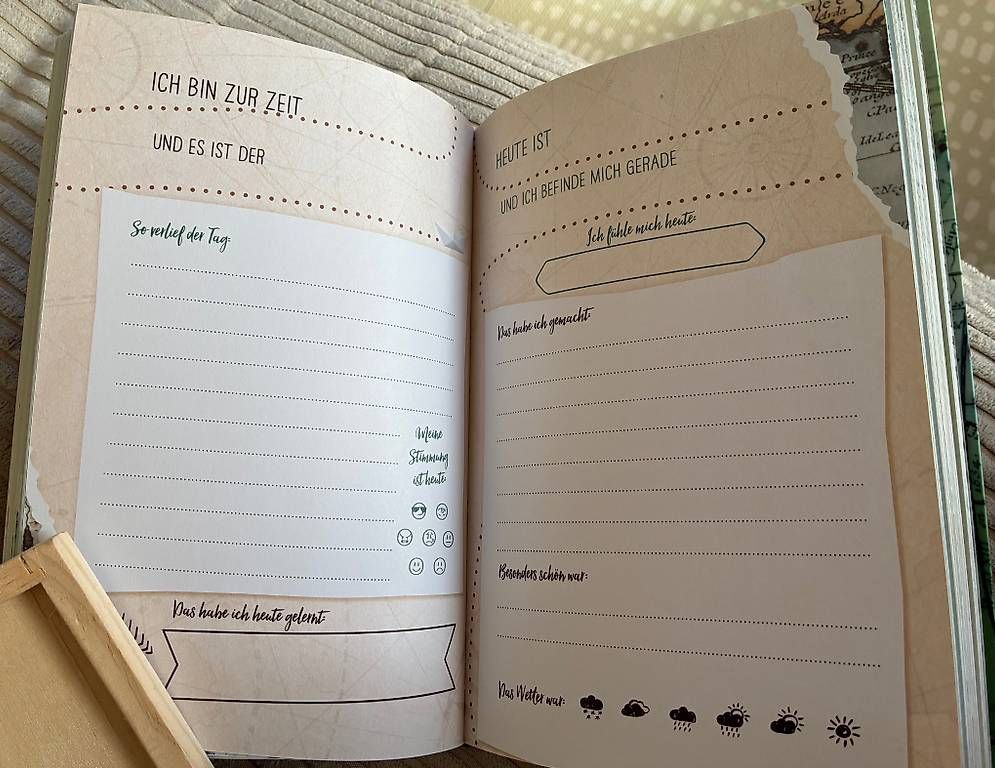 ICH BIN ZUR ZEIT
UND ES IST DER
So verlief der Tag:
Meine
Stimmung
ist heute:
Das habe ich heute gelernt:
HEUTE IST
UND ICH BEFINDE MICH GERADE
Ich fühle mich heute:
Das habe ich gemacht:
Besonders schön war:
Das Wetter war:
Prince